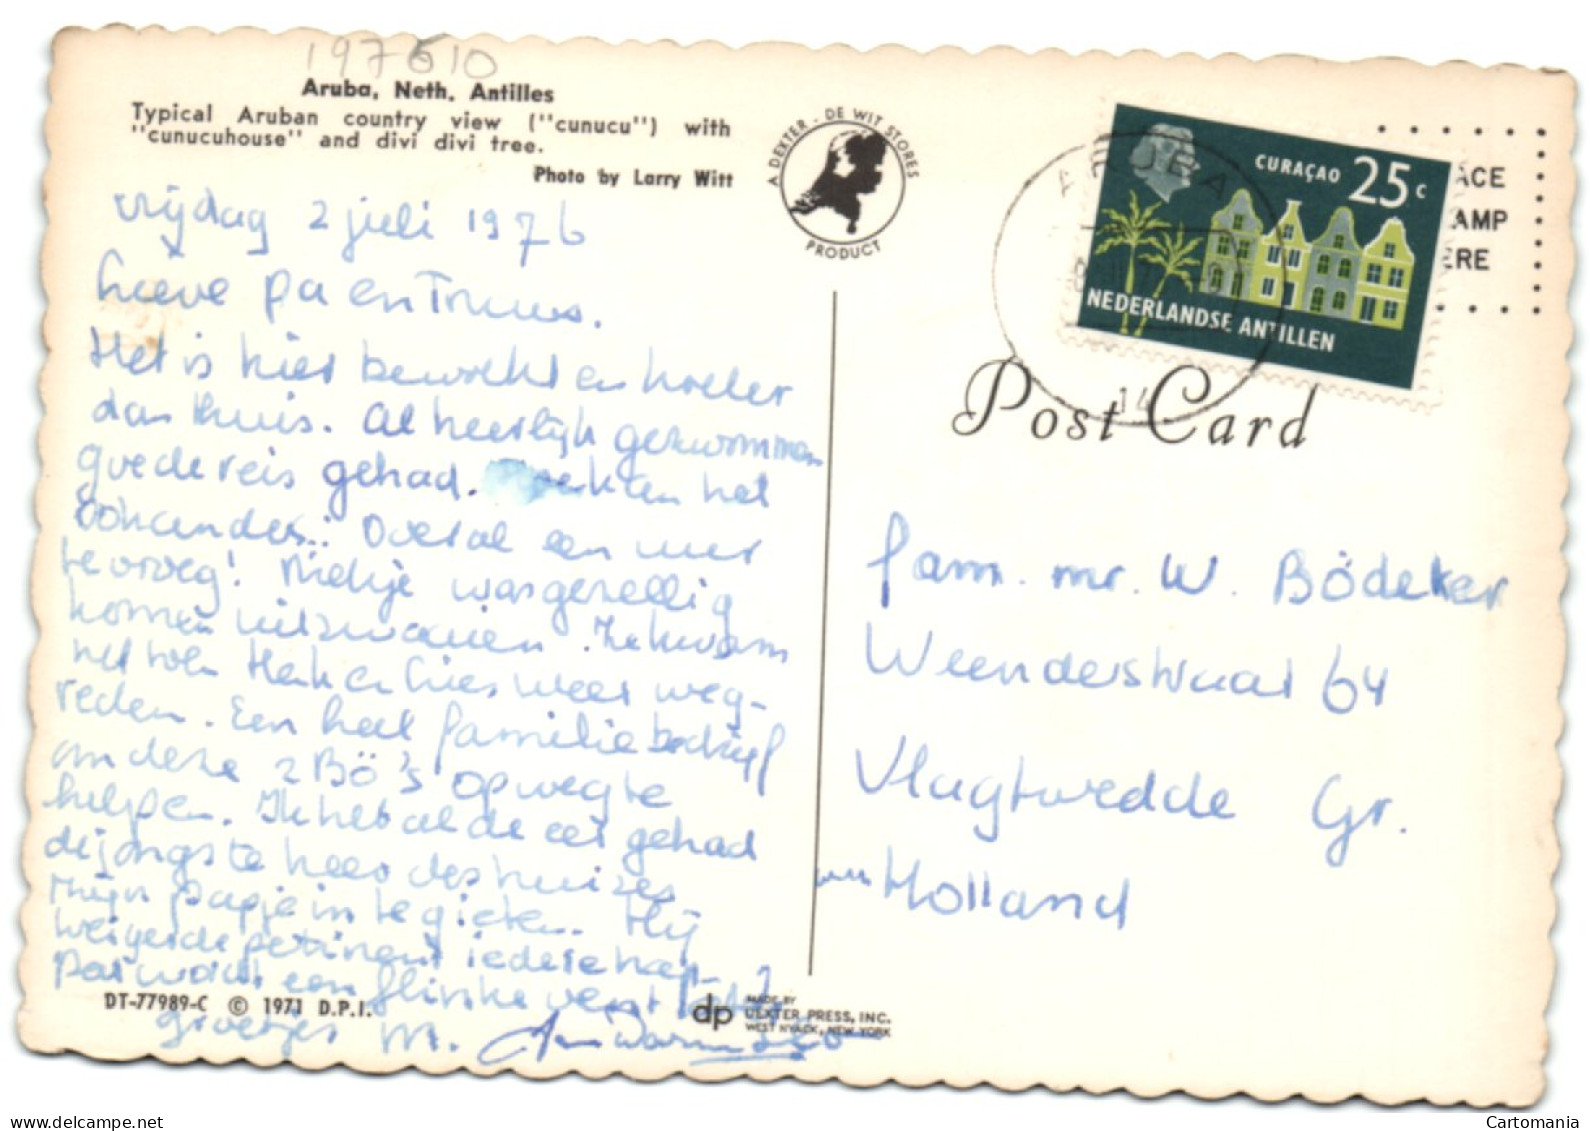 197610
Aruba, Neth. Antilles
Typical Aruban country view ("cunucu") with
"cunucuhouse" and divi divi tree.
Photo by Larry Witt
A DEXTER - DE WIT STORES
PRODUCT
CURAÇAO 25 c
NEDERLANDSE ANTILLEN
ARUBA
14
ACE
AMP
ERE
Post Card
vrijdag 2 juli 1976
Lieve Pa en Truus.
Het is hier bewolkt en koeler
dan thuis. Al heerlijk gezwommen
goede reis gehad. het
Overal een uur
te vroeg! Niekje was gezellig
komen uitzwaaien. Ze kwam
net toen Henk en Lies weer weg-
reden. Een heel familiebedrijf
om deze 2 Bö's op weg te
helpen. Ik heb al de eer gehad
de jongste heer des huizes
zijn papje in te gieten. Hij
weigerde pertinent iedere hap.
een flinke vent
groetjes M.
fam. mr. W. Bödeker
Weenderstraat 64
Vlagtwedde Gr.
Holland
DT-77989-C © 1971 D.P.I.
dp MADE BY
DEXTER PRESS, INC.
WEST NYACK, NEW YORK
Cartomania